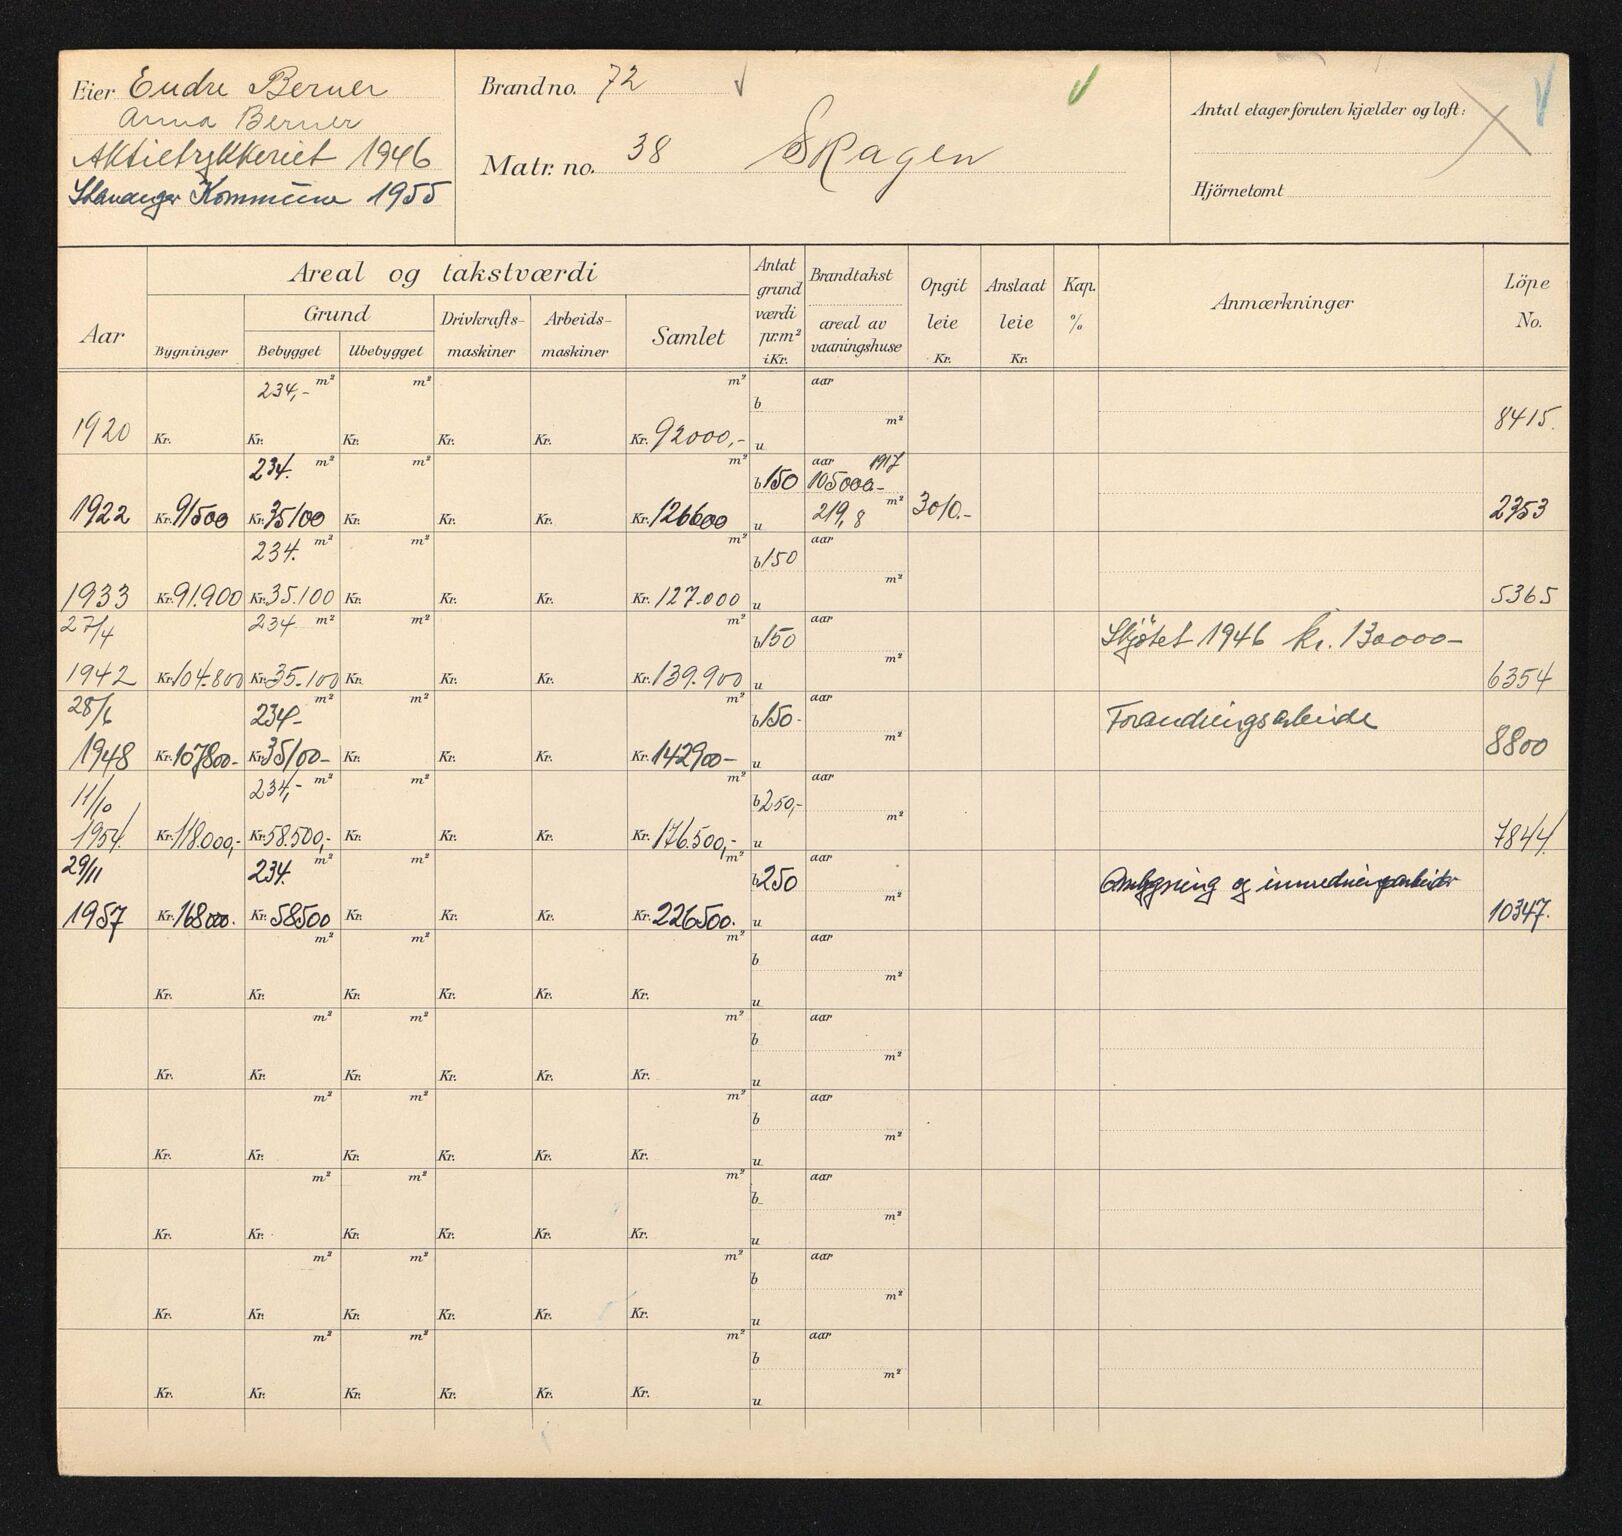 Eier Endre Berner
Anna Berner
Aktietrykkeriet 1946
Stavanger Kommune 1955
Brand no. 72
Matr. no. 38 Skagen
Antal etager foruten kjælder og loft:
Hjörnetomt
Aar
Areal og takstværdi
Bygninger
Grund
Bebygget
Ubebygget
Drivkrafts-maskiner
Arbeids-maskiner
Samlet
Antat grund værdi pr. m² i Kr.
Brandtakst
areal av vaaningshuse
Opgit leie Kr.
Anslaat leie Kr.
Kap. %
Anmærkninger
Löpe No.
234,- m² m² m² b aar
1920 Kr. Kr. Kr. Kr. Kr. Kr. 92000,- u m² 8415.
234. m² m² m² b 150 aar 1917 105000-
1922 Kr. 91500 Kr. 35100 Kr. Kr. Kr. Kr. 126600 u 219,8 m² 3010.- 2353
234. m² m² m² b 150 aar
1933 Kr. 91.900 Kr. 35.100 Kr. Kr. Kr. Kr. 127.000 u m² 5365
27/4 234 m² m² m² b 150 aar Skjötet 1946 kr. 130000-
1942 Kr. 104.800 Kr. 35.100 Kr. Kr. Kr. Kr. 139.900 u m² 6354
28/6 234- m² m² m² b 150- aar Forandringsarbeide
1948 Kr. 107800- Kr. 35100- Kr. Kr. Kr. Kr. 142900- u m² 8800
11/10 234,- m² m² m² b 250,- aar
1954 Kr. 118.000,- Kr. 58.500,- Kr. Kr. Kr. Kr. 176.500,- u m² 7844
29/11 234. m² m² m² b 250 aar Ombygning og innredningsarbeider
1957 Kr. 168000. Kr. 58500 Kr. Kr. Kr. Kr. 226500. u m² 10347.
m² m² m² b aar
Kr. Kr. Kr. Kr. Kr. Kr. u m²
m² m² m² b aar
Kr. Kr. Kr. Kr. Kr. Kr. u m²
m² m² m² b aar
Kr. Kr. Kr. Kr. Kr. Kr. u m²
m² m² m² b aar
Kr. Kr. Kr. Kr. Kr. Kr. u m²
m² m² m² b aar
Kr. Kr. Kr. Kr. Kr. Kr. u m²
m² m² m² b aar
Kr. Kr. Kr. Kr. Kr. Kr. u m²